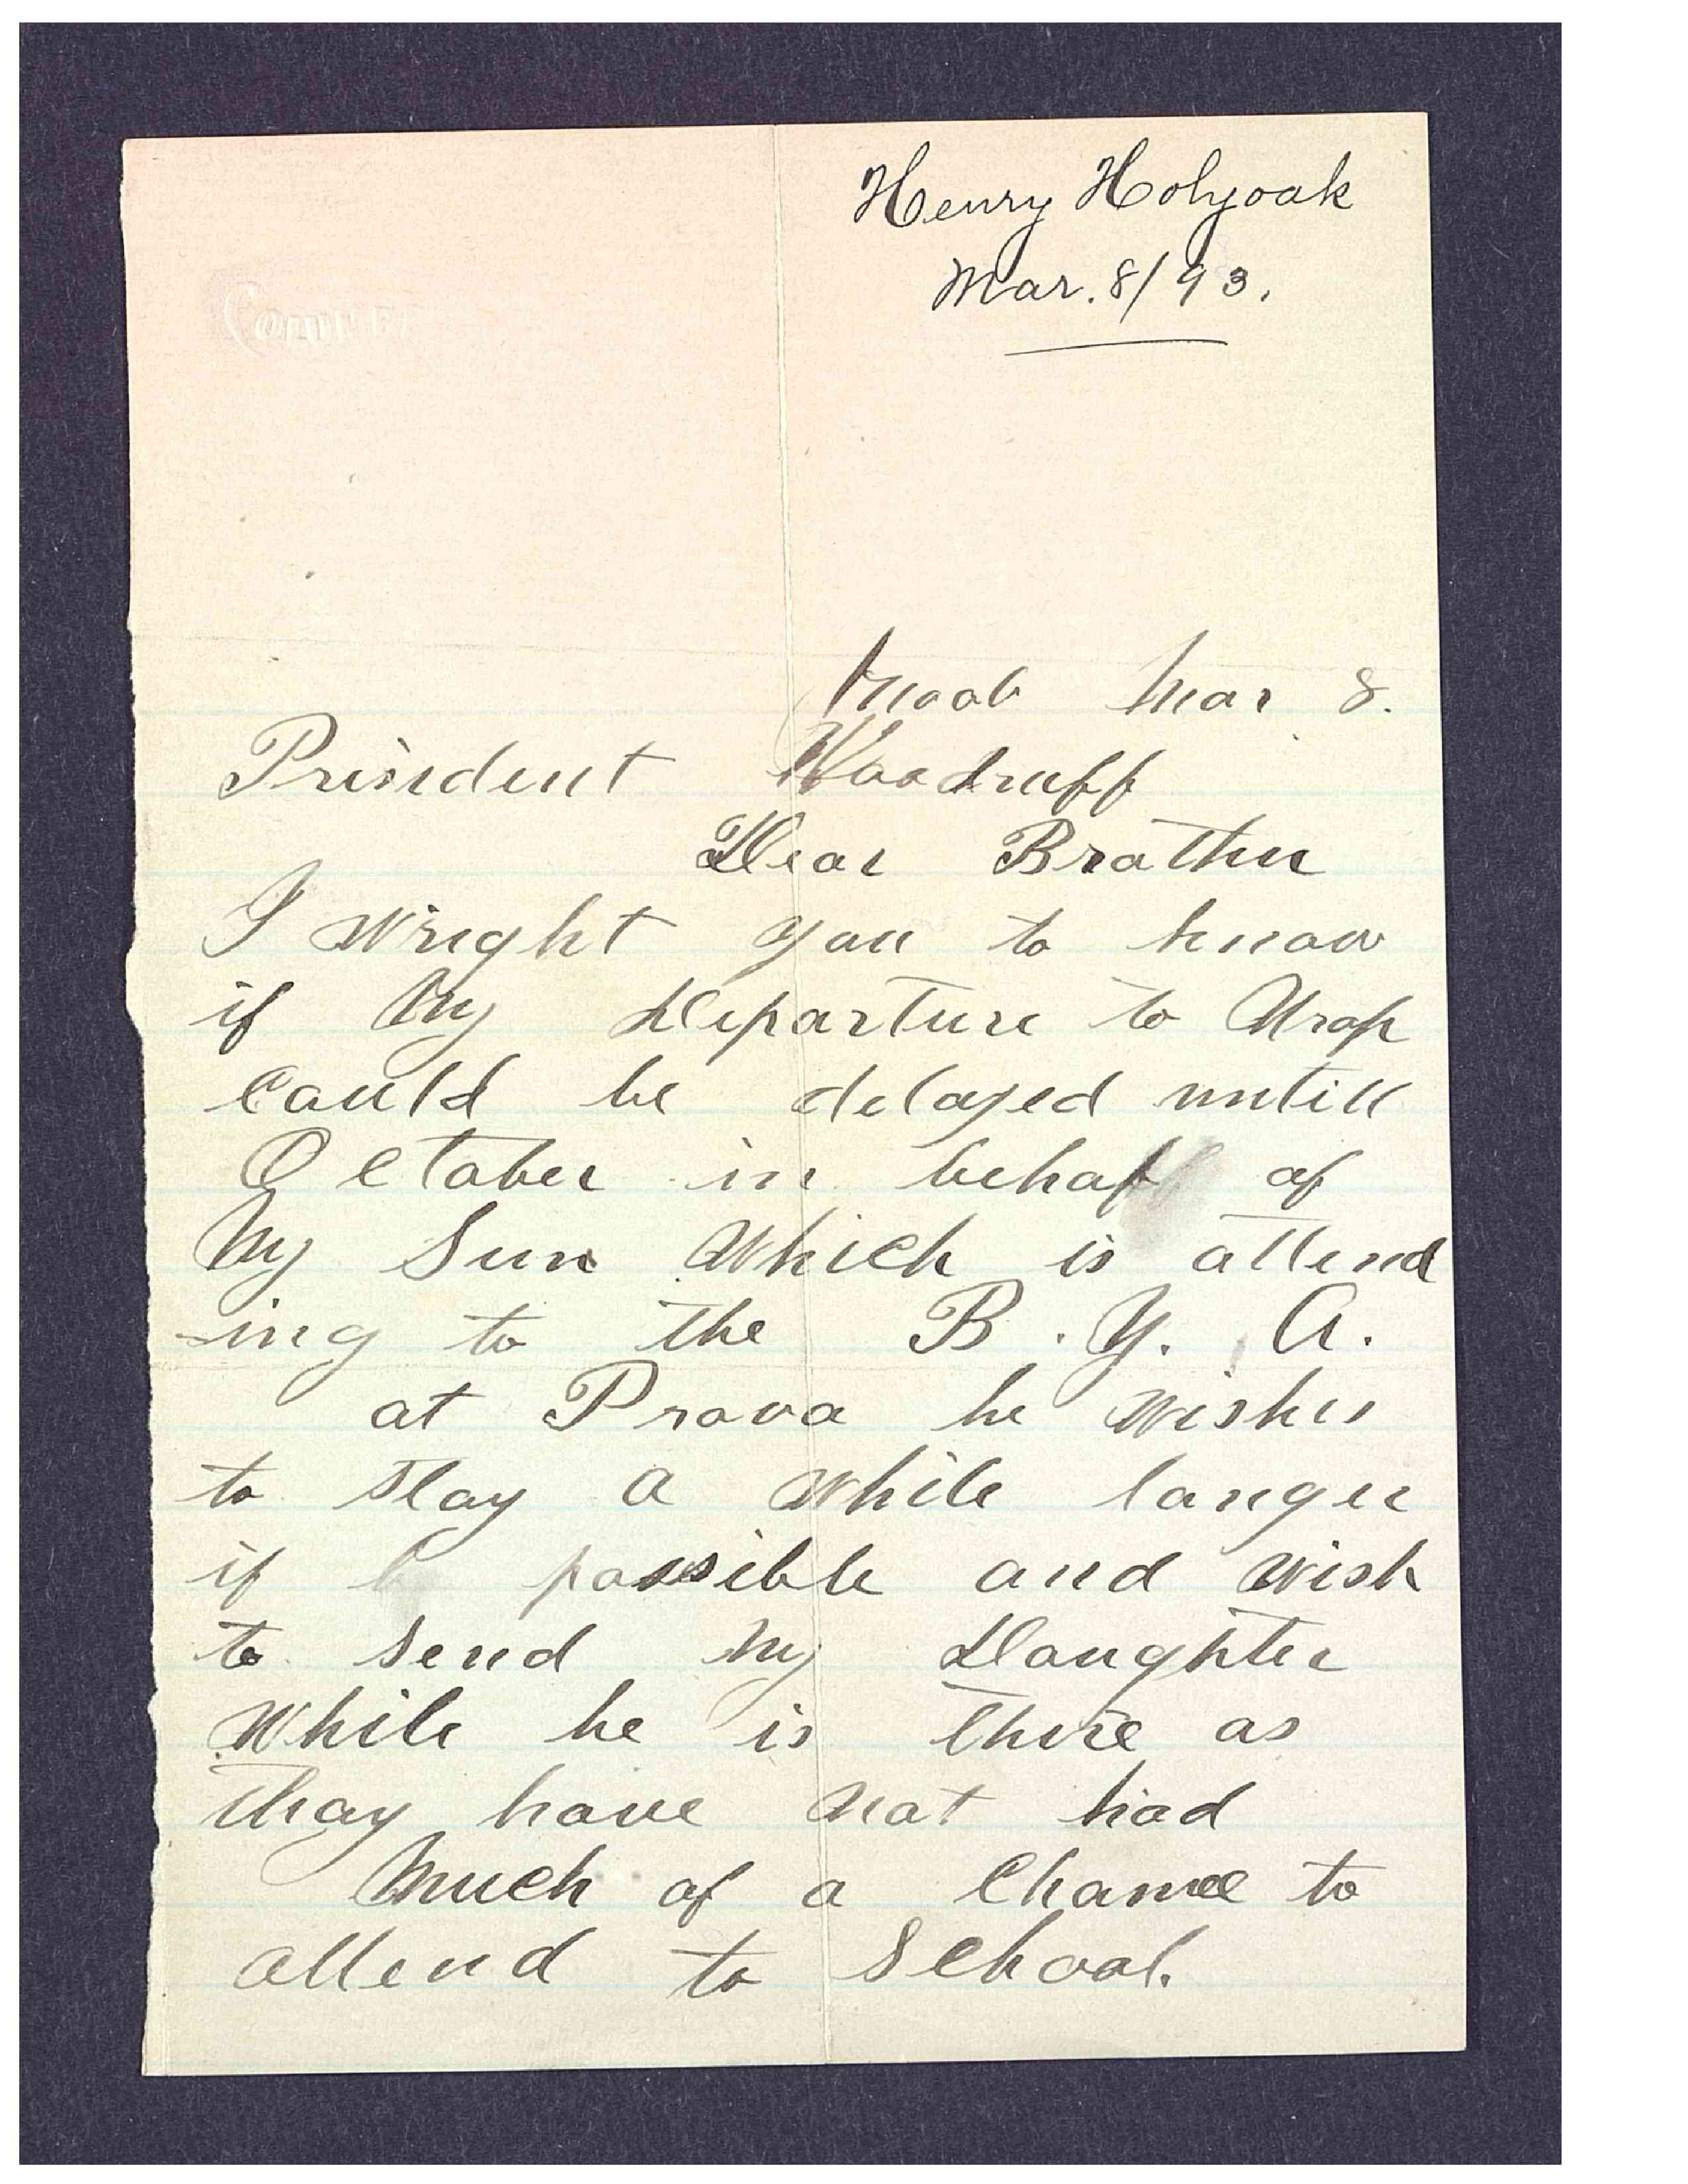 Henry Holyoak
Mar. 8/93.
Moab Mar 8.
Prisident Woodruff
Dear Brother
I wright you to know
if My Departure to Urop
Could be delayed untill
October in behaf of
My Sun Which is attend
-ing to the B. Y. A.
at Provo he wishes
to stay a while longer
if possible and wish
to send My Daughter
while he is there as
thay have not had
Much of a Chance to
attend to School.